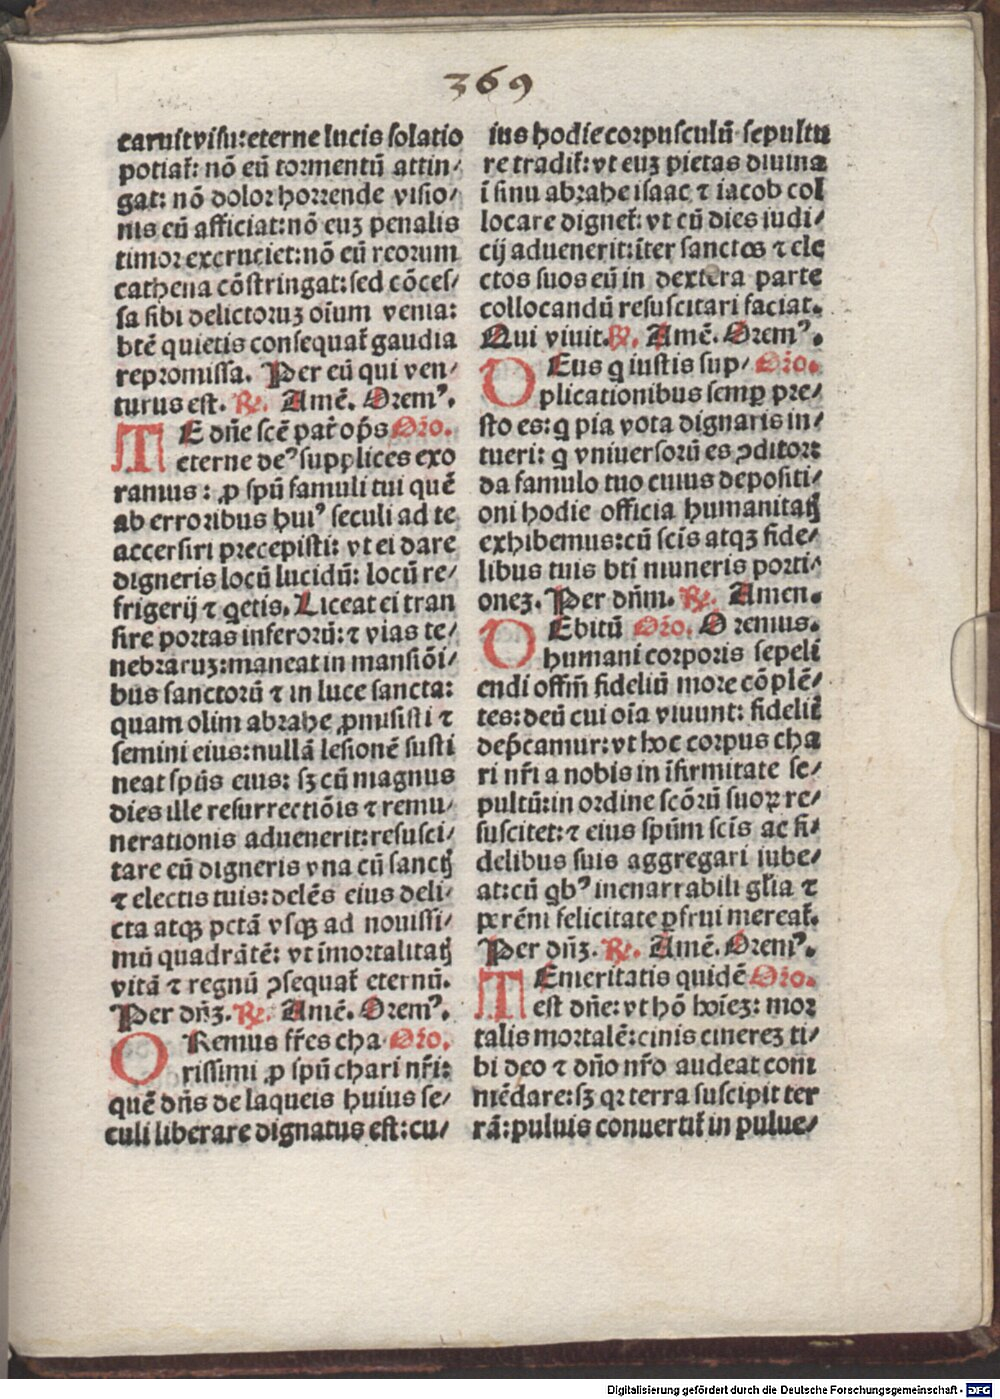 369
caruit visu: eterne lucis solatio
potiat᷑: nō eū tormentū attin⸗
gat: nō dolor horrende visio⸗
nis eū afficiat: nō euꝫ penalis
timor excruciet: nō eū reorum
cathena cōstringat: sed cōces⸗
sa sibi delictoruꝫ oīum venia:
btē quietis consequat᷑ gaudia
repromissa. Per eū qui ven⸗
turus est. ℞. Amē. Oremꝰ.
TE dn̄e scē pat̄ op̄s Or̄o.
eterne deꝰ supplices exo
ramus: ꝓ spū famuli tui quē
ab erroribus huiꝰ seculi ad te
accersiri precepisti: vt ei dare
digneris locū lucidū: locū re⸗
frigerij ⁊ q̇etis. Liceat ei tran
sire portas inferorū: ⁊ vias te⸗
nebraruꝫ: maneat in mansiōi⸗
bus sanctorū ⁊ in luce sancta:
quam olim abrahe ꝓmisisti ⁊
semini eius: nullā lesionē susti
neat spūs eius: sꝫ cū magnus
dies ille resurrectiōis ⁊ remu⸗
nerationis aduenerit: resusci⸗
tare eū digneris vna cū sanctꝭ
⁊ electis tuis: delēs eius deli⸗
cta atqꝫ pctā vsqꝫ ad nouissi⸗
mū quadrātē: vt īmortalitatꝭ
vitā ⁊ regnū ꝯsequat᷑ eternū.
Per dn̄ꝫ. ℞. Amē. Oremꝰ.
ORemus fr̄es cha Or̄o.
rissimi ꝓ spū chari nr̄i:
quē dn̄s de laqueis huius se⸗
culi liberare dignatus est: cu⸗
ius hodie corpusculū sepultu
re tradit᷑: vt euꝫ pietas diuina
ī sinu abrahe isaac ⁊ iacob col
locare dignet᷑: vt cū dies iudi⸗
cij aduenerit: īter sanctos ⁊ ele
ctos suos eū in dextera parte
collocandū resuscitari faciat.
Qui viuit. ℞. Amē. Oremꝰ.
DEus q iustis sup⸗ Or̄o.
plicationibus semꝑ pre⸗
sto es: q pia vota dignaris in⸗
tueri: q vniuersorū es ꝯditor:
da famulo tuo cuius depositi⸗
oni hodie officia humanitatꝭ
exhibemus: cū scīs atqꝫ fide⸗
libus tuis bti muneris porti⸗
onez. Per dn̄m. ℞. Amen.
DEbitū Or̄o. Oremus.
humani corporis sepeli
endi offm̄ fideliū more cōplē⸗
tes: deū cui oīa viuunt: fidelit᷑
dep̄camur: vt hoc corpus cha
ri nr̄i a nobis in īfirmitate se⸗
pultū: in ordine scōrū suoꝝ re⸗
suscitet: ⁊ eius spūm scīs ac fi⸗
delibus suis aggregari iube⸗
at: cū qbꝰ inenarrabili gl̄ia ⁊
perēni felicitate ꝑfrui mereat᷑.
Per dn̄ꝫ. ℞. Amē. Oremꝰ.
TEmeritatis quidē Or̄o.
est dn̄e: vt hō hoīeꝫ: mor
talis mortalē: cinis cinereꝫ ti⸗
bi deo ⁊ dn̄o nr̄o audeat com
mēdare: sꝫ qꝛ terra suscipit ter
rā: puluis conuertit᷑ in pulue⸗
Digitalisierung gefördert durch die Deutsche Forschungsgemeinschaft - DFG